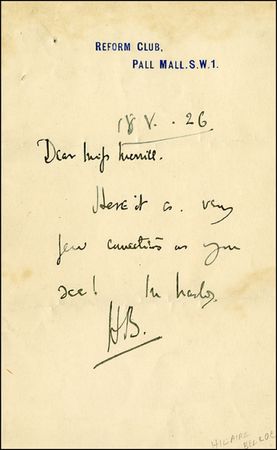 REFORM CLUB,
PALL MALL. S.W.1.
18 V. . 26
Dear Miss Merrill.
Here it is. very
few corrections as you
see! In haste,
HB.
HILAIRE
BELLOC